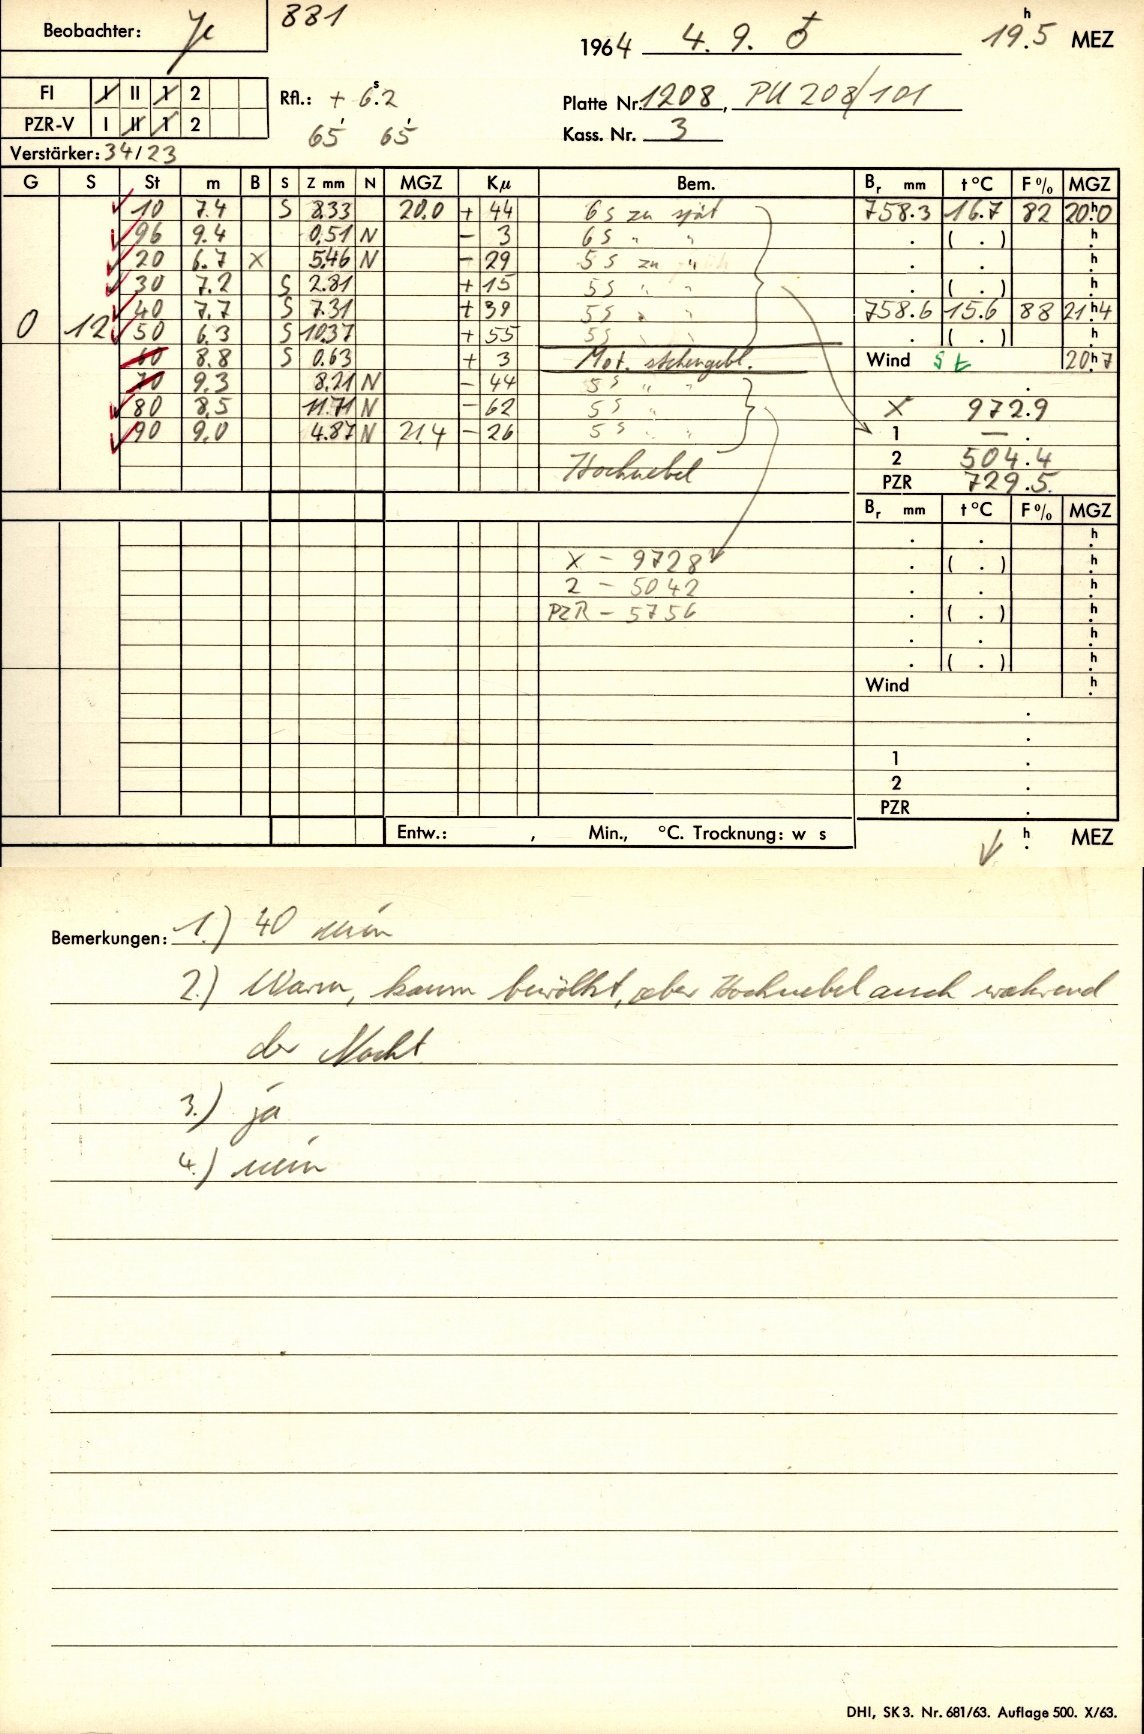 Beobachter: Je 881 1964 4. 9. ♂ 19.5 h MEZ
FI I II 1 2
PZR-V I II 1 2
Rfl.: + 6.2 s
65 65
Platte Nr. 1208, PU 208/101
Kass. Nr. 3
Verstärker: 34/23
G S St m B S Z mm N MGZ Kμ Bem. Br mm t °C F % MGZ
10 7.4 S 8.33 20.0 + 44 6 s zu spät 758.3 16.7 82 20h0
96 9.4 0.51 N - 3 6 s " " . ( . ) h
20 6.7 X 5.46 N - 29 5 s zu " . . h
30 7.2 S 2.81 + 15 5 s " " . ( . ) h
40 7.7 S 7.31 + 39 5 s " " 758.6 15.6 88 21h4
0 12 50 6.3 S 10.37 + 55 5 s " " . ( . ) h
60 8.8 S 0.63 + 3 Mot. stehengebl. Wind 20h7
70 9.3 8.21 N - 44 5 s " " .
80 8.5 11.71 N - 62 5 s " X 972.9
90 9.0 4.87 N 21.4 - 26 5 s " " 1 — .
Hochnebel 2 504.4
PZR 729.5
Br mm t °C F % MGZ
. . h
X - 9728 . ( . ) h
2 - 5042 . . h
PZR - 5756 . ( . ) h
. . h
. ( . ) h
Wind h
.
.
1 .
2 .
PZR .
Entw.: , Min., °C. Trocknung: w s h MEZ
Bemerkungen: 1.) 40 min
2.) Warm, kaum bewölkt, aber Hochnebel auch während
der Nacht
3.) ja
4.) nein
DHI, SK 3. Nr. 681/63. Auflage 500. X/63.